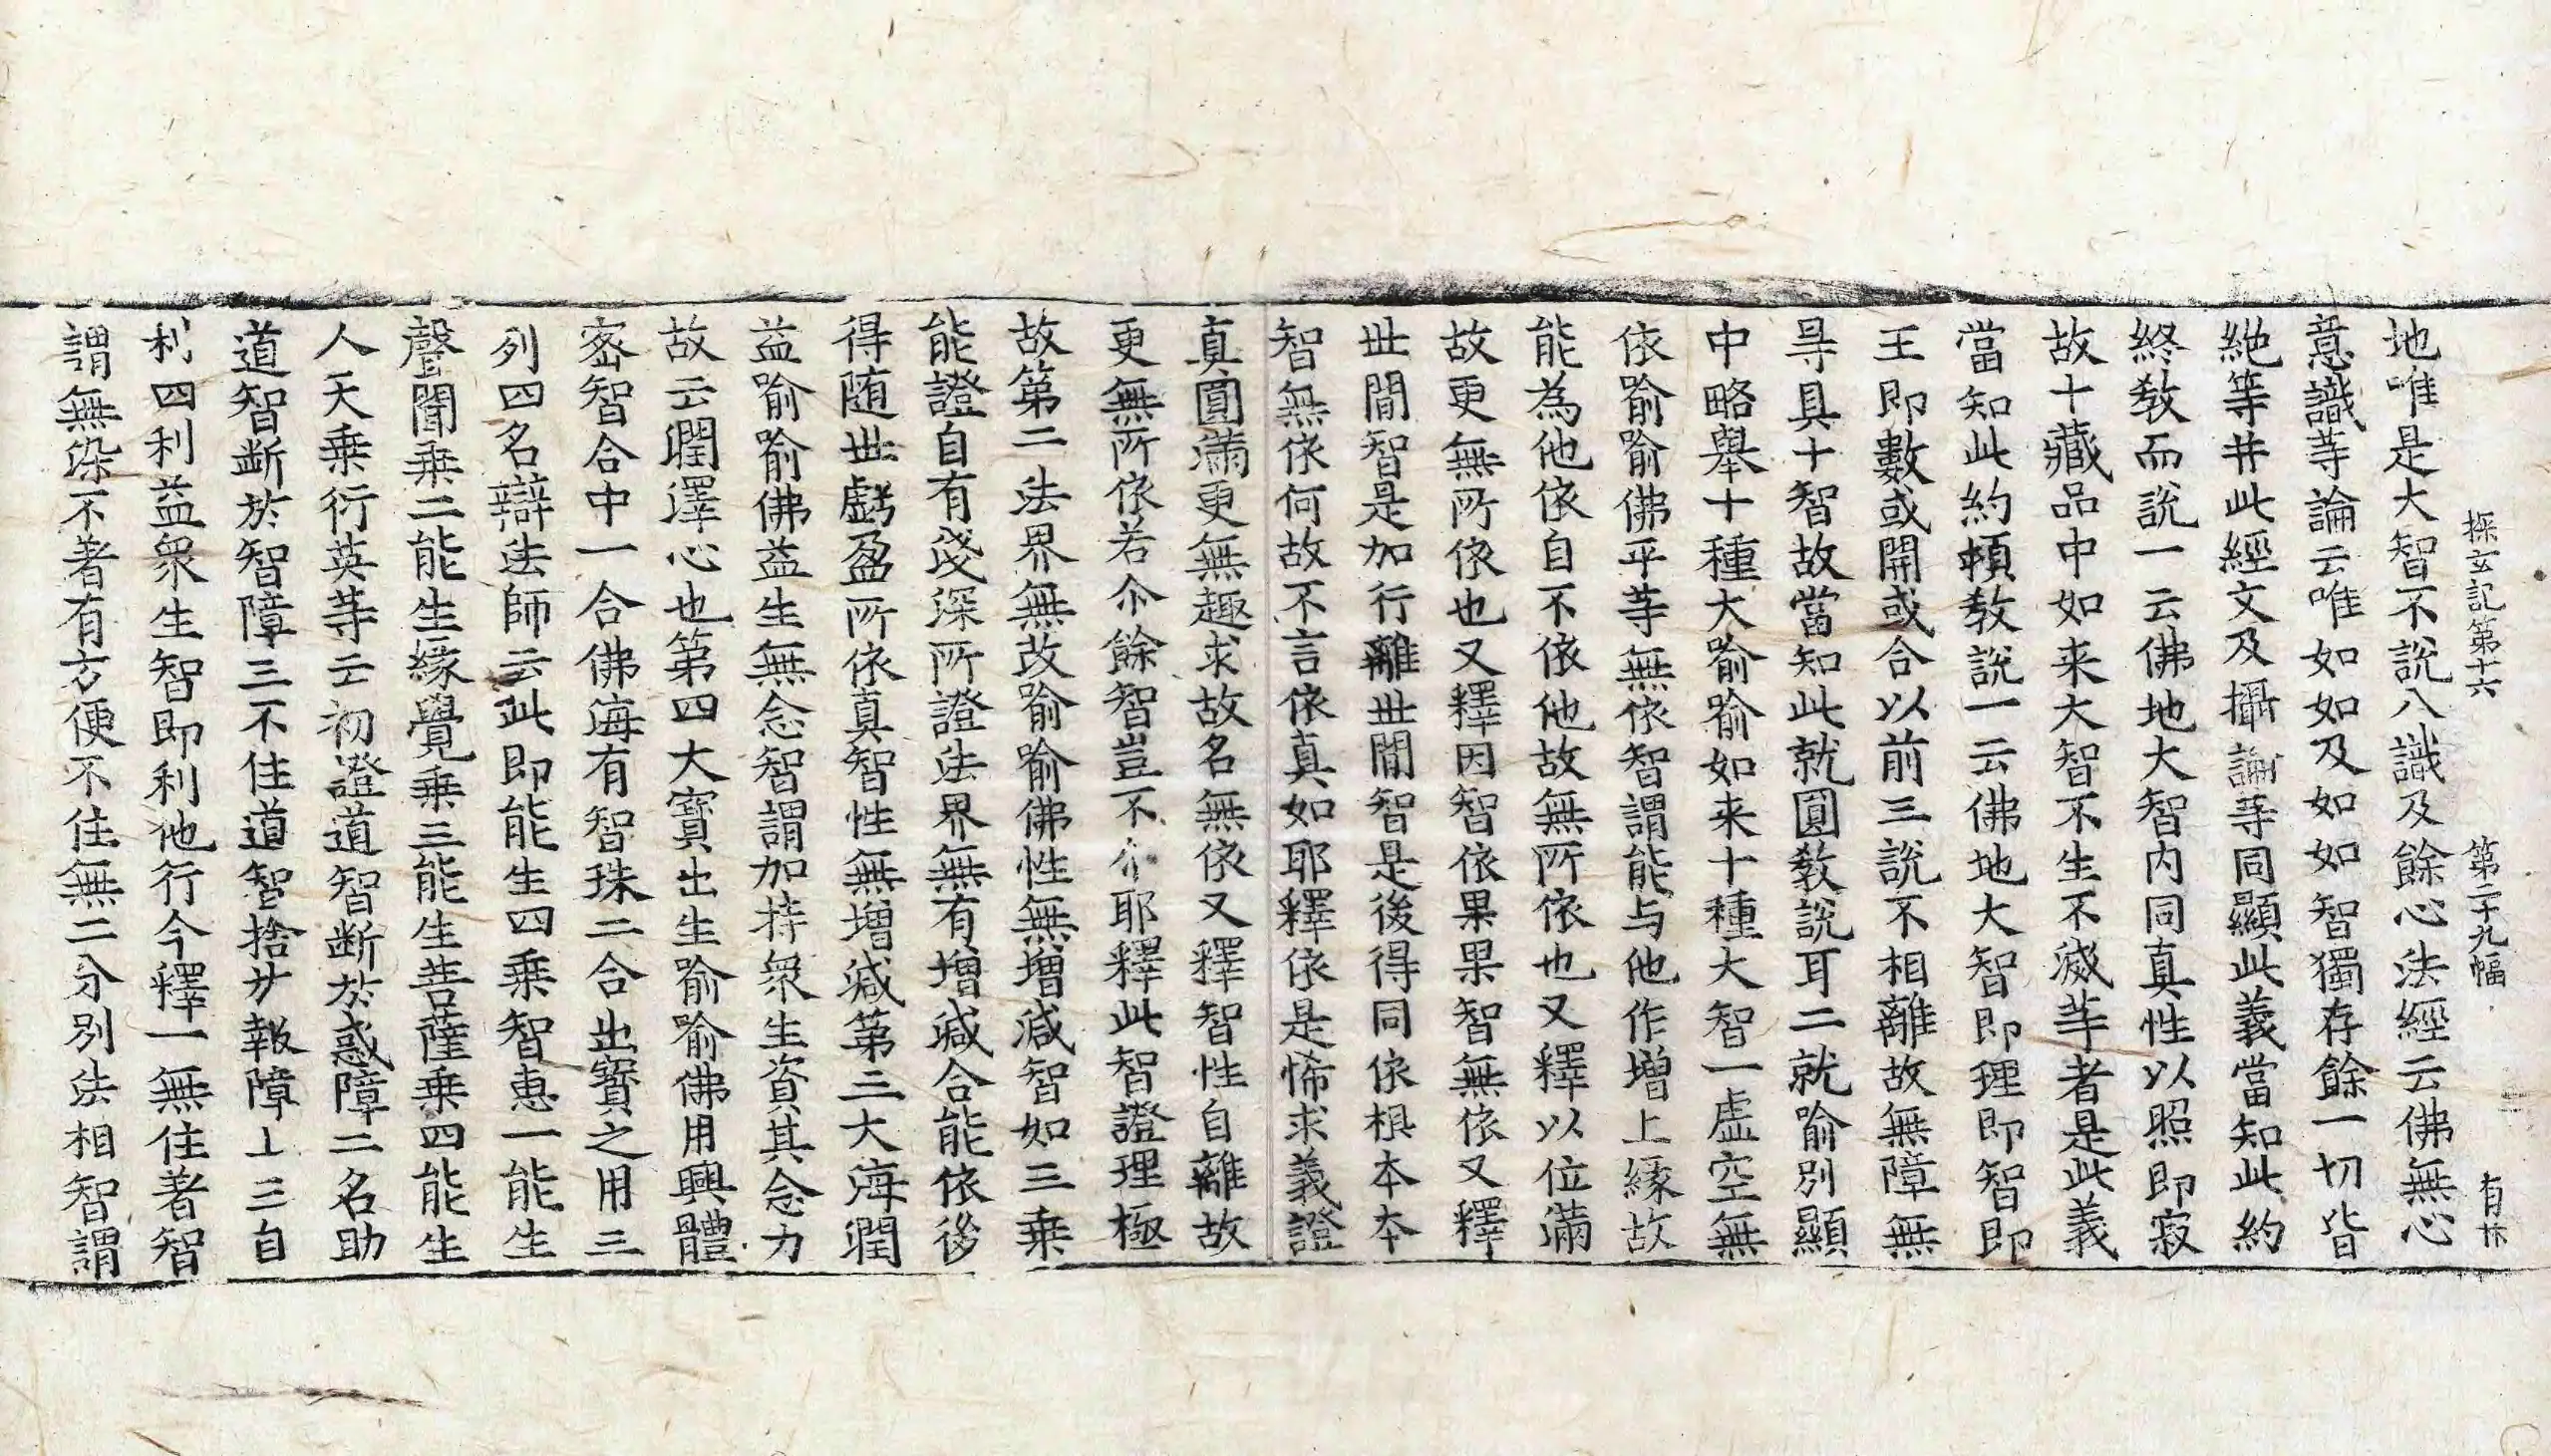 探玄記第十六 第二十九幅 有休
地唯是大智不說八識及餘心法經云佛無心
意識等論云唯如如及如如智獨存餘一切皆
絶等井此經文及攝論等同顯此義當知此約
終敎而說一云佛地大智內同真性以照即寂
故十藏品中如来大智不生不滅䓁者是此義
當知此約頓敎說一云佛地大智即理即智即
王即數或開或合以前三說不相離故無障無
㝵具十智故當知此就圓敎說耳二就喻別顯
中略舉十種大喻喻如来十種大智一虛空無
依喻喻佛平䓁無依智謂能与他作增上緣故
能為他依自不依他故無所依也又釋以位滿
故更無所依也又釋因智依果果智無依又釋
世間智是加行離世間智是後得同依根本本
智無依何故不言依真如耶釋依是悕求義證
真圓滿更無趣求故名無依又釋智性自離故
更無所依若尒餘智豈不尒耶釋此智證理極
故第二法界無改喻喻佛性無增減智如三乗
能證自有淺深所證法界無有增減合能依後
得随世虧盈所依真智性無增減第三大海潤
益喻喻佛益生無念智謂加持衆生資其念力
故云潤澤心也第四大寳出生喻喻佛用興體
宻智合中一合佛海有智珠二合出寳之用三
列四名辯法師云此即能生四乗智惠一能生
聲聞乗二能生緣覺乗三能生菩薩乗四能生
人天乗衍英䓁云初證道智断於惑障二名助
道智断於智障三不住道智捨於報障上三自
利四利益衆生智即利他行今釋一無住著智
謂無染不著有方便不住無二分別法相智謂